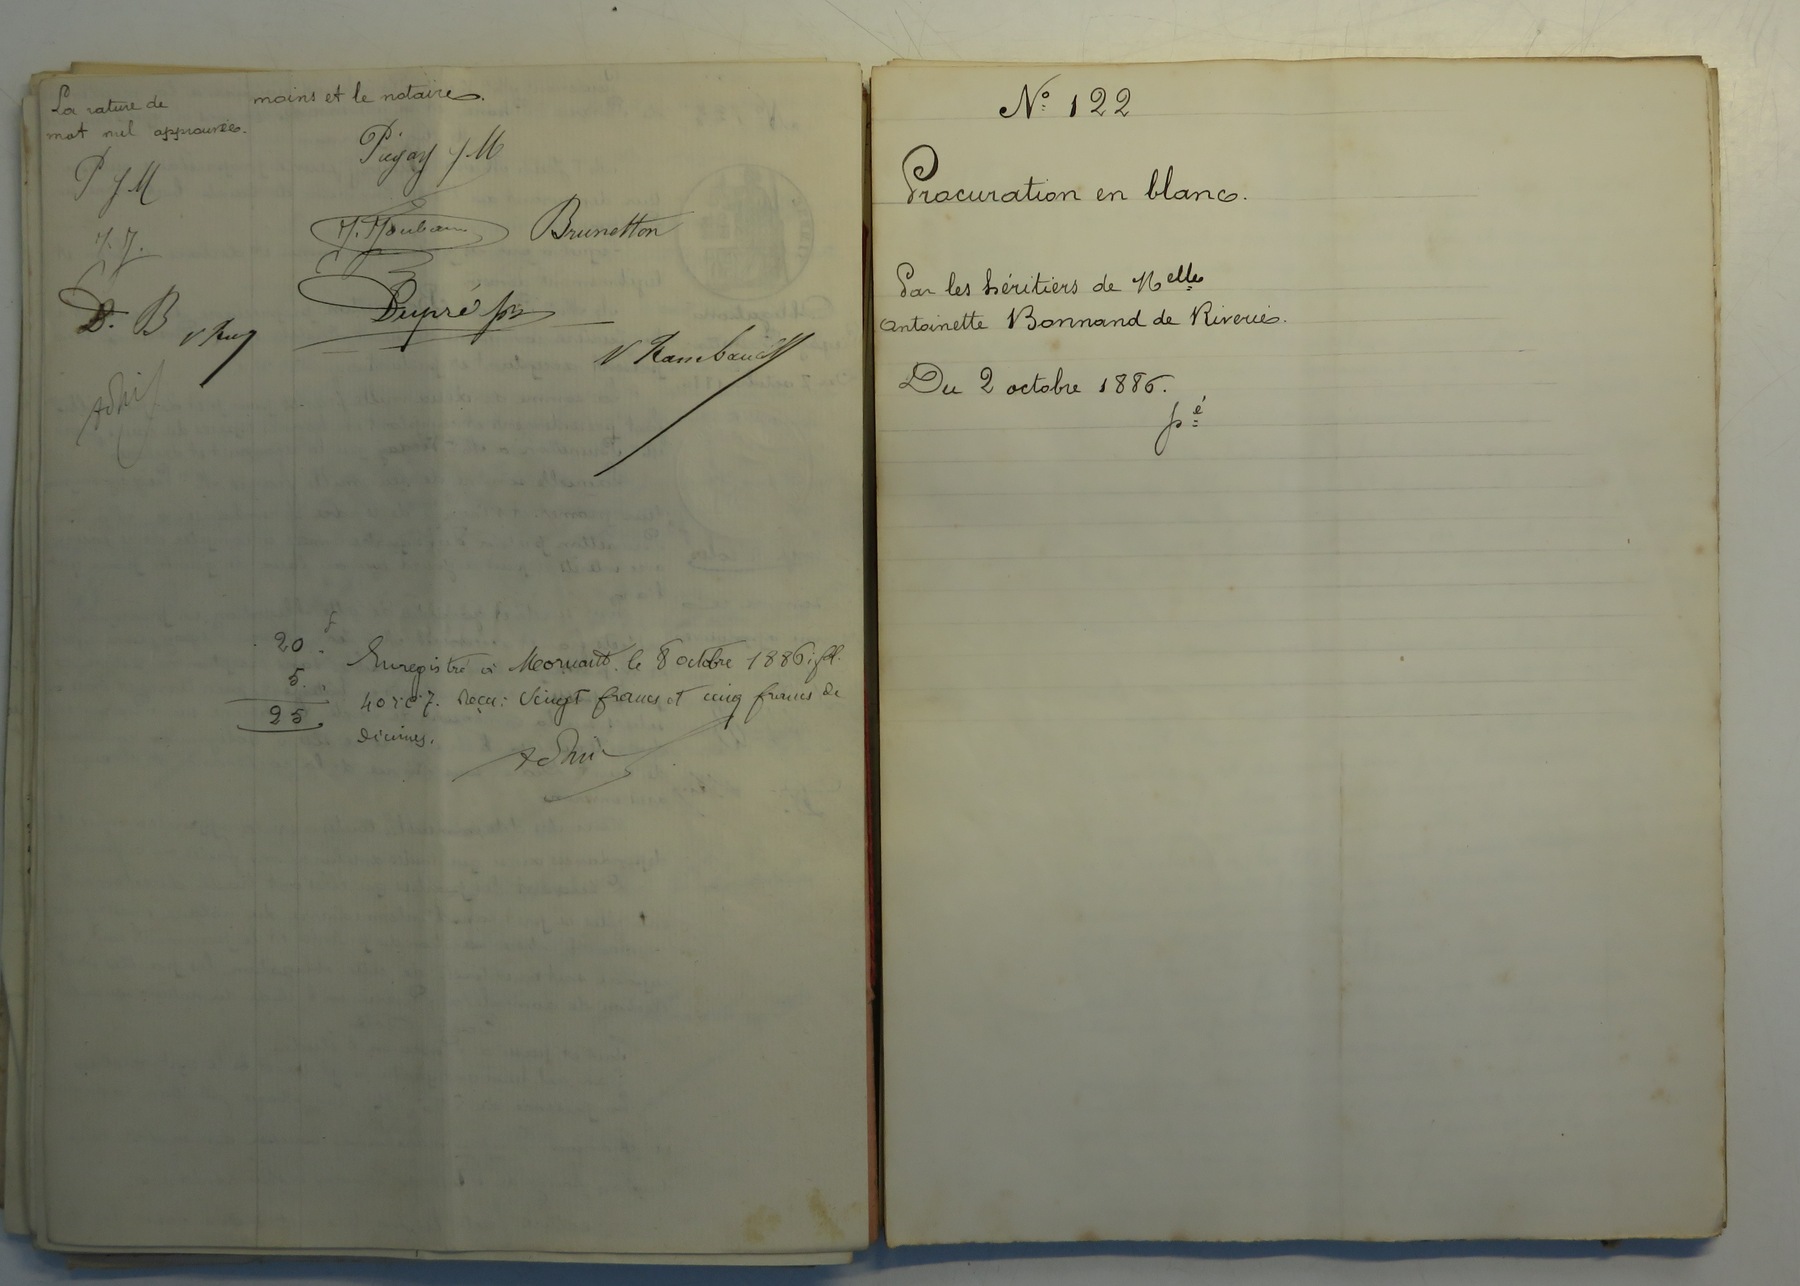 La rature de
mot nul approuvée.
moins et le notaire.
P J M
Pugay J M
D. B
Brunetton
Dupré
20 f
5
25
Enregistré à Mornant le 8 octobre 1886, fol.
40 r. c. 7. Reçu: Vingt francs et cinq francs de
décimes.
No. 122
Procuration en blanc.
Par les héritiers de Melle
Antoinette Bonnand de Riverie.
Du 2 octobre 1886.